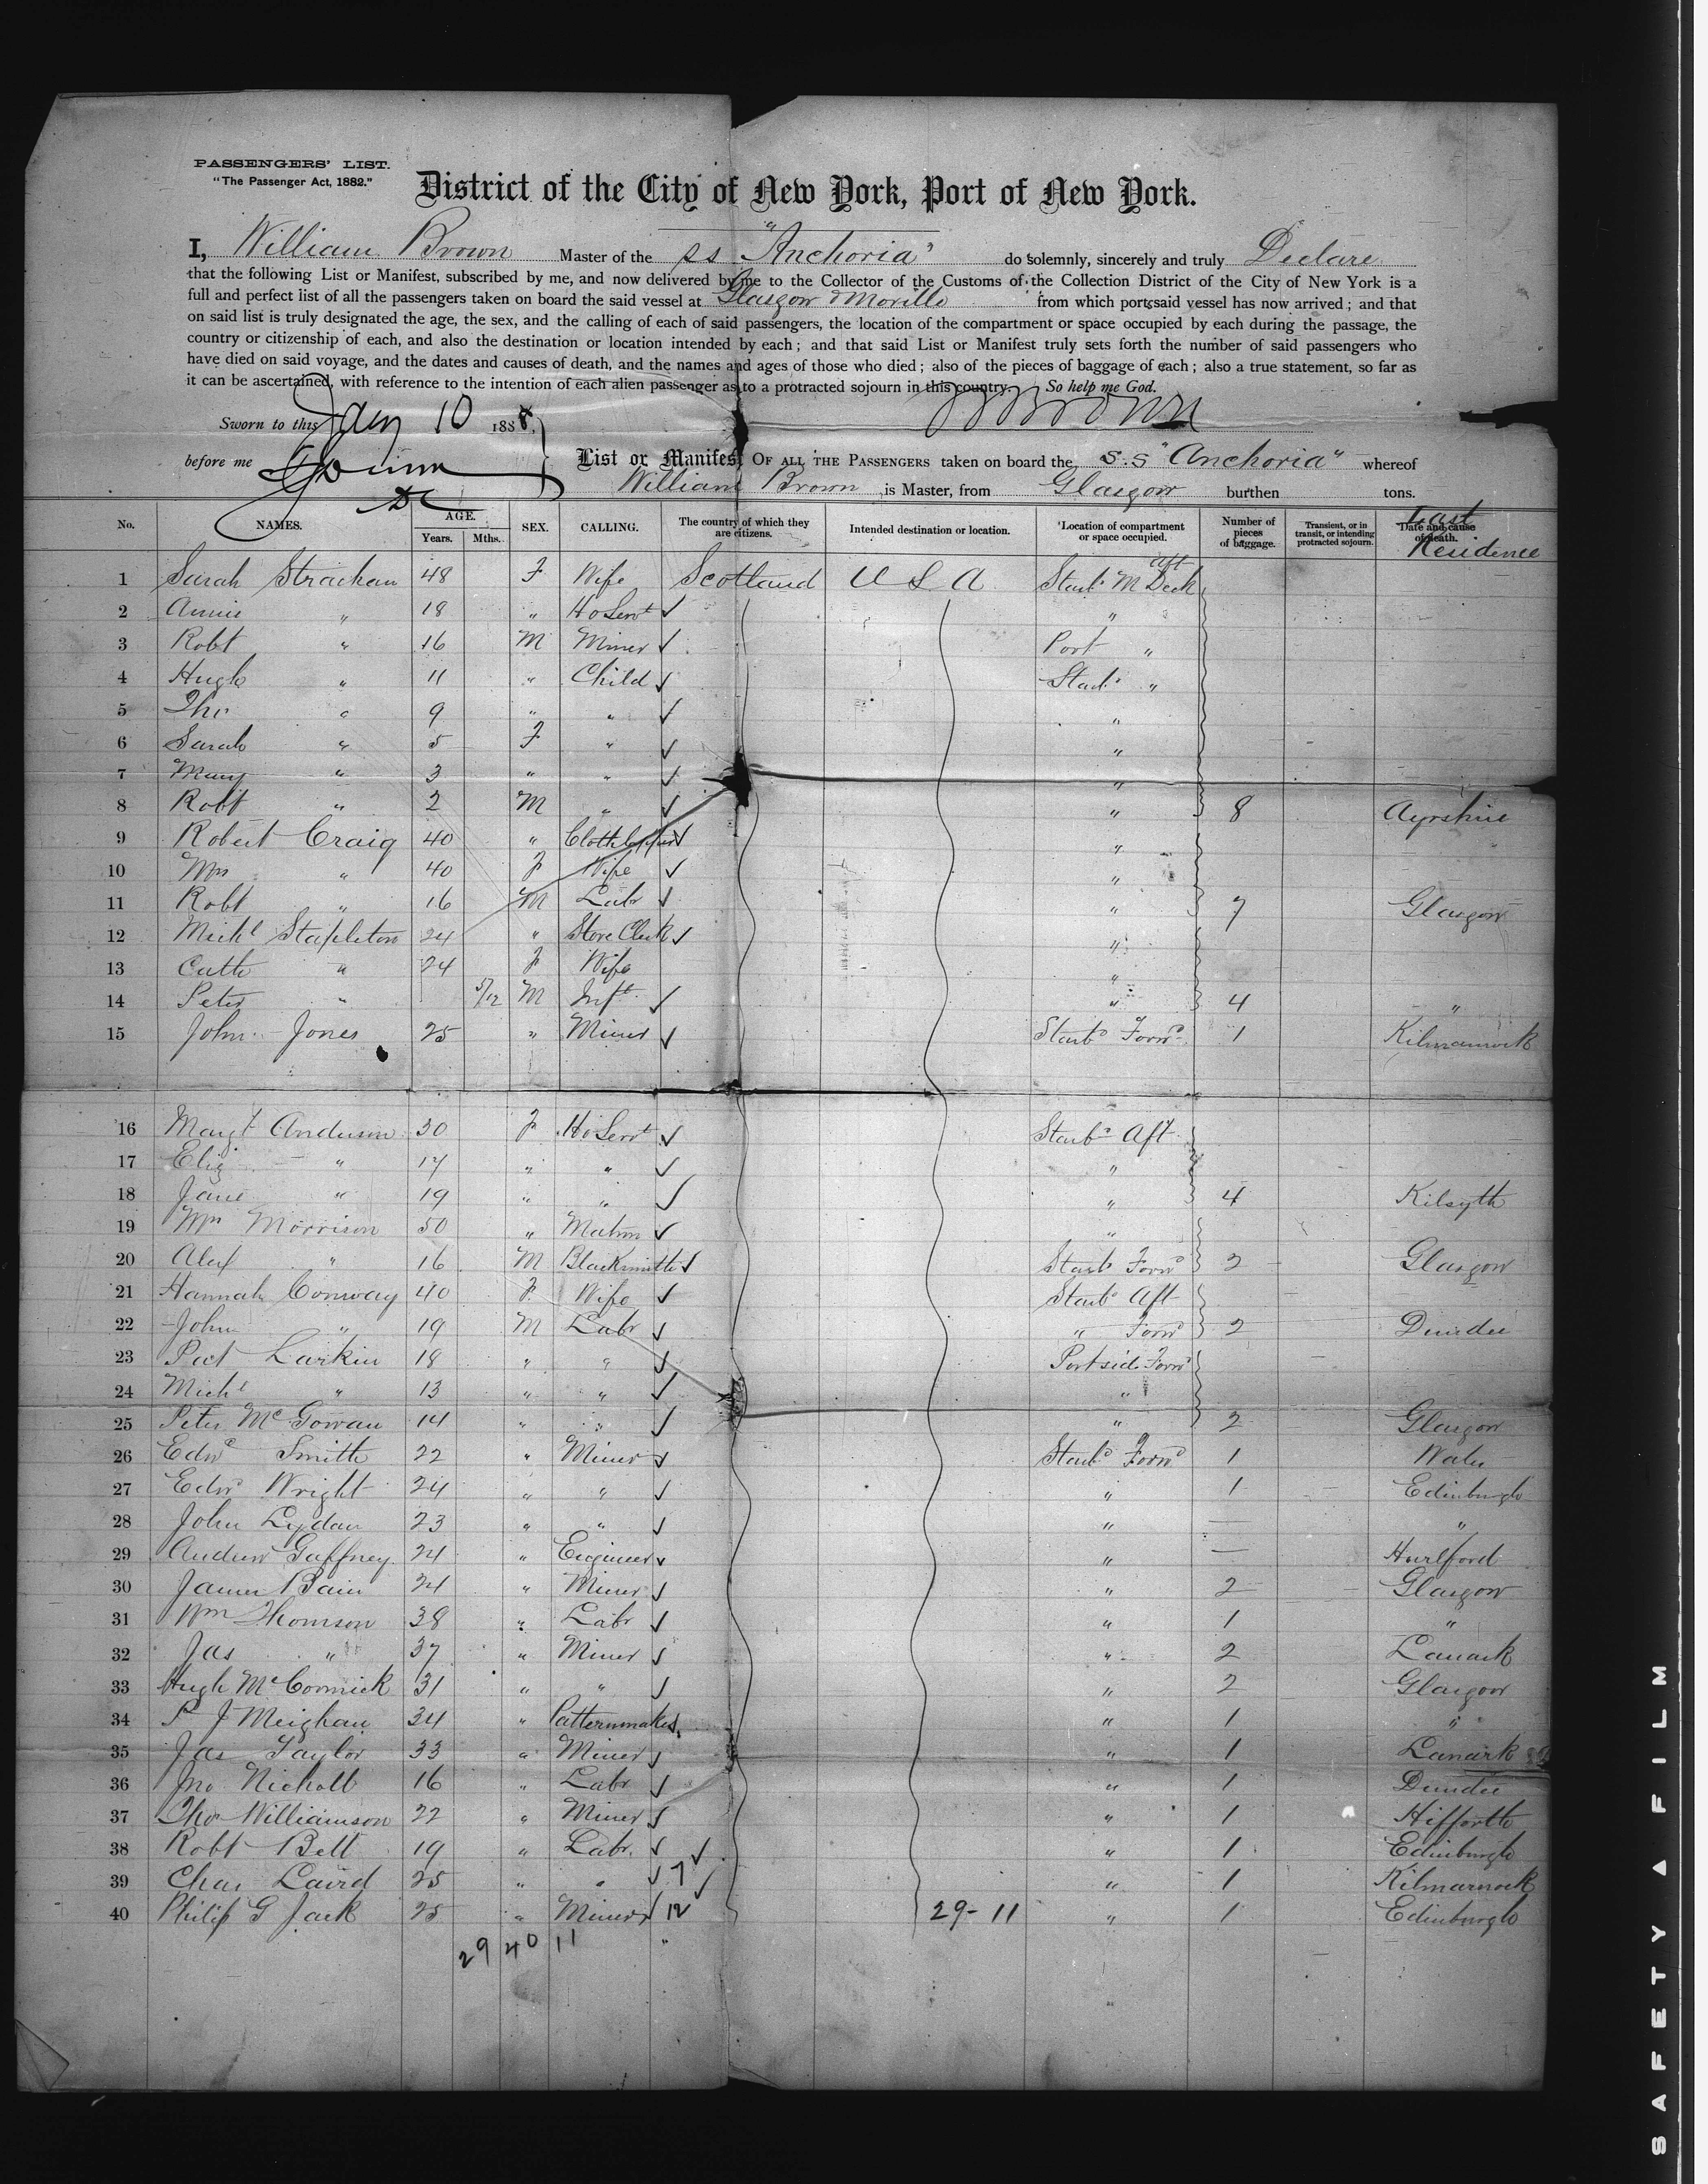 PASSENGERS' LIST.
"The Passenger Act, 1882."
District of the City of New York, Port of New York.
I, William Brown Master of the ss "Anchoria" do solemnly, sincerely and truly Declare
that the following List or Manifest, subscribed by me, and now delivered by me to the Collector of the Customs of the Collection District of the City of New York is a
full and perfect list of all the passengers taken on board the said vessel at Glasgow & Moville from which port said vessel has now arrived; and that
on said list is truly designated the age, the sex, and the calling of each of said passengers, the location of the compartment or space occupied by each during the passage, the
country or citizenship of each, and also the destination or location intended by each; and that said List or Manifest truly sets forth the number of said passengers who
have died on said voyage, and the dates and causes of death, and the names and ages of those who died; also of the pieces of baggage of each; also a true statement, so far as
it can be ascertained, with reference to the intention of each alien passenger as to a protracted sojourn in this country. So help me God.
Sworn to this Jany 10 1888, W Brown
before me
List or Manifest OF ALL THE PASSENGERS taken on board the s.s "Anchoria" whereof
William Brown is Master, from Glasgow burthen tons.
No. NAMES. AGE. Years. Mths. SEX. CALLING. The country of which they are citizens. Intended destination or location. Location of compartment or space occupied. Number of pieces of baggage. Transient, or in transit, or intending protracted sojourn. Date and cause of death. Last Residence
1 Sarah Strachan 48 F Wife Scotland U S A Starbd M Deck aft
2 Annie " 18 " Ho Servt "
3 Robt " 16 M Miner Port "
4 Hugh " 11 " Child Starbd "
5 Thos " 9 " " "
6 Sarah " 5 F " "
7 Mary " 3 " " "
8 Robt " 2 M " " 8 Ayrshire
9 Robert Craig 40 " "
10 Mrs " 40 F Wife "
11 Robt " 16 M Labr " 7 Glasgow
12 Michl Stapleton 24 " Store Clerk "
13 Cath " 24 F Wife "
14 Peter " 5/12 M Inft " 4 "
15 John Jones 25 " Miner Starbd Forwd 1 Kilmarnock
16 Margt Anderson 30 F Ho Servt Starbd Aft
17 Eliz " 17 " " "
18 Jane " 19 " " " 4 Kilsyth
19 Mrs Morrison 50 " Matron "
20 Alex " 16 M Blacksmith Starbd Forwd 2 Glasgow
21 Hannah Conway 40 F Wife Starbd Aft
22 John " 19 M Labr " Forwd 2 Dundee
23 Pat Larkin 18 " " Portside Forwd
24 Michl " 13 " " "
25 Peter McGowan 14 " " " 2 Glasgow
26 Edwd Smith 22 " Miner Starbd Forwd 1 Wales
27 Edwd Wright 24 " " " 1 Edinburgh
28 John Lydan 23 " " " — "
29 Andrew Gaffney 24 " Engineer " — Hurlford
30 James Bain 24 " Miner " 2 Glasgow
31 Wm Thomson 38 " Labr " 1 "
32 Jas " 37 " Miner " 2 Lanark
33 Hugh McCormick 31 " " " 2 Glasgow
34 P J Meighan 34 " Patternmaker " 1 "
35 Jas Taylor 33 " Miner " 1 Lanark
36 Jno Nicholl 16 " Labr " 1 Dundee
37 Thos Williamson 22 " Miner " 1
38 Robt Bell 19 " Labr. " 1 Edinburgh
39 Chas Laird 25 " " 7 " 1 Kilmarnock
40 Philip G Jack 25 " Miner 12 29-11 " 1 Edinburgh
29 40 11 "
SAFETY ▲ FILM